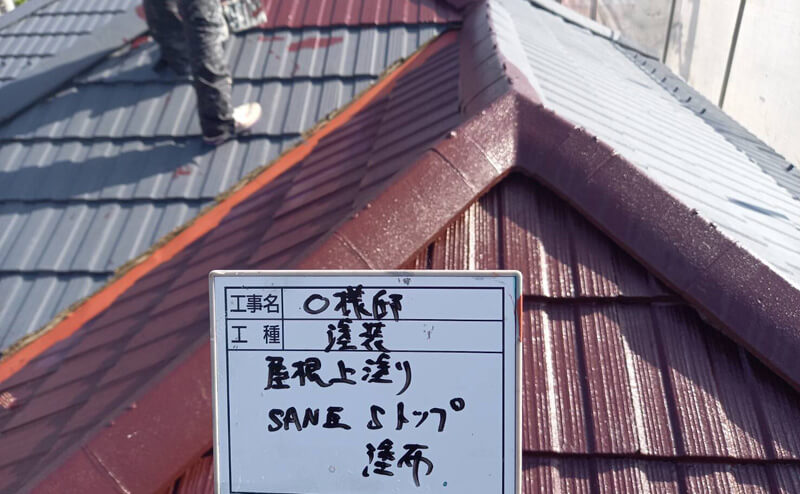 工事名 〇様邸
工種 塗装
屋根上塗り
SANⅡ Sトップ
塗布